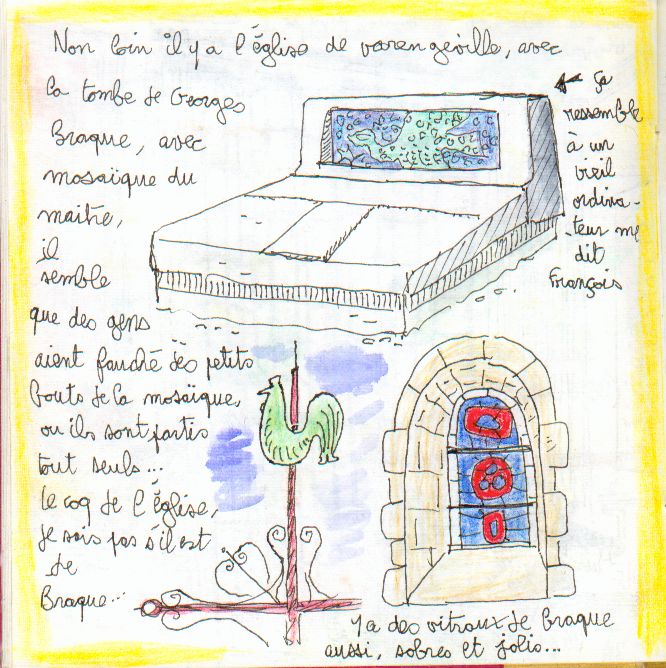 Non loin il y a l'église de varengeville, avec
la tombe de Georges
Braque, avec
mosaïque du
maitre,
il
semble
que des gens
aient fauché des petits
bouts de la mosaïque,
ou ils sont partis
tout seuls...
le coq de l'église,
je sais pas s'il est
de
Braque...
ça
ressemble
à un
vieil
ordina-
-teur me
dit
François
y a des vitraux de braque
aussi, sobres et jolis...